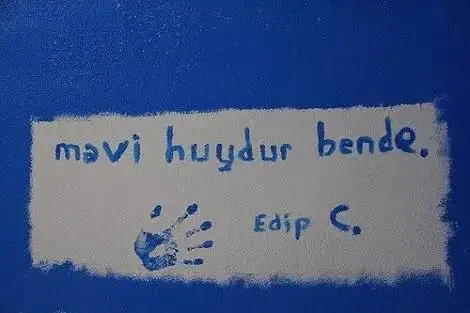 mavi huydur bende.
Edip C.